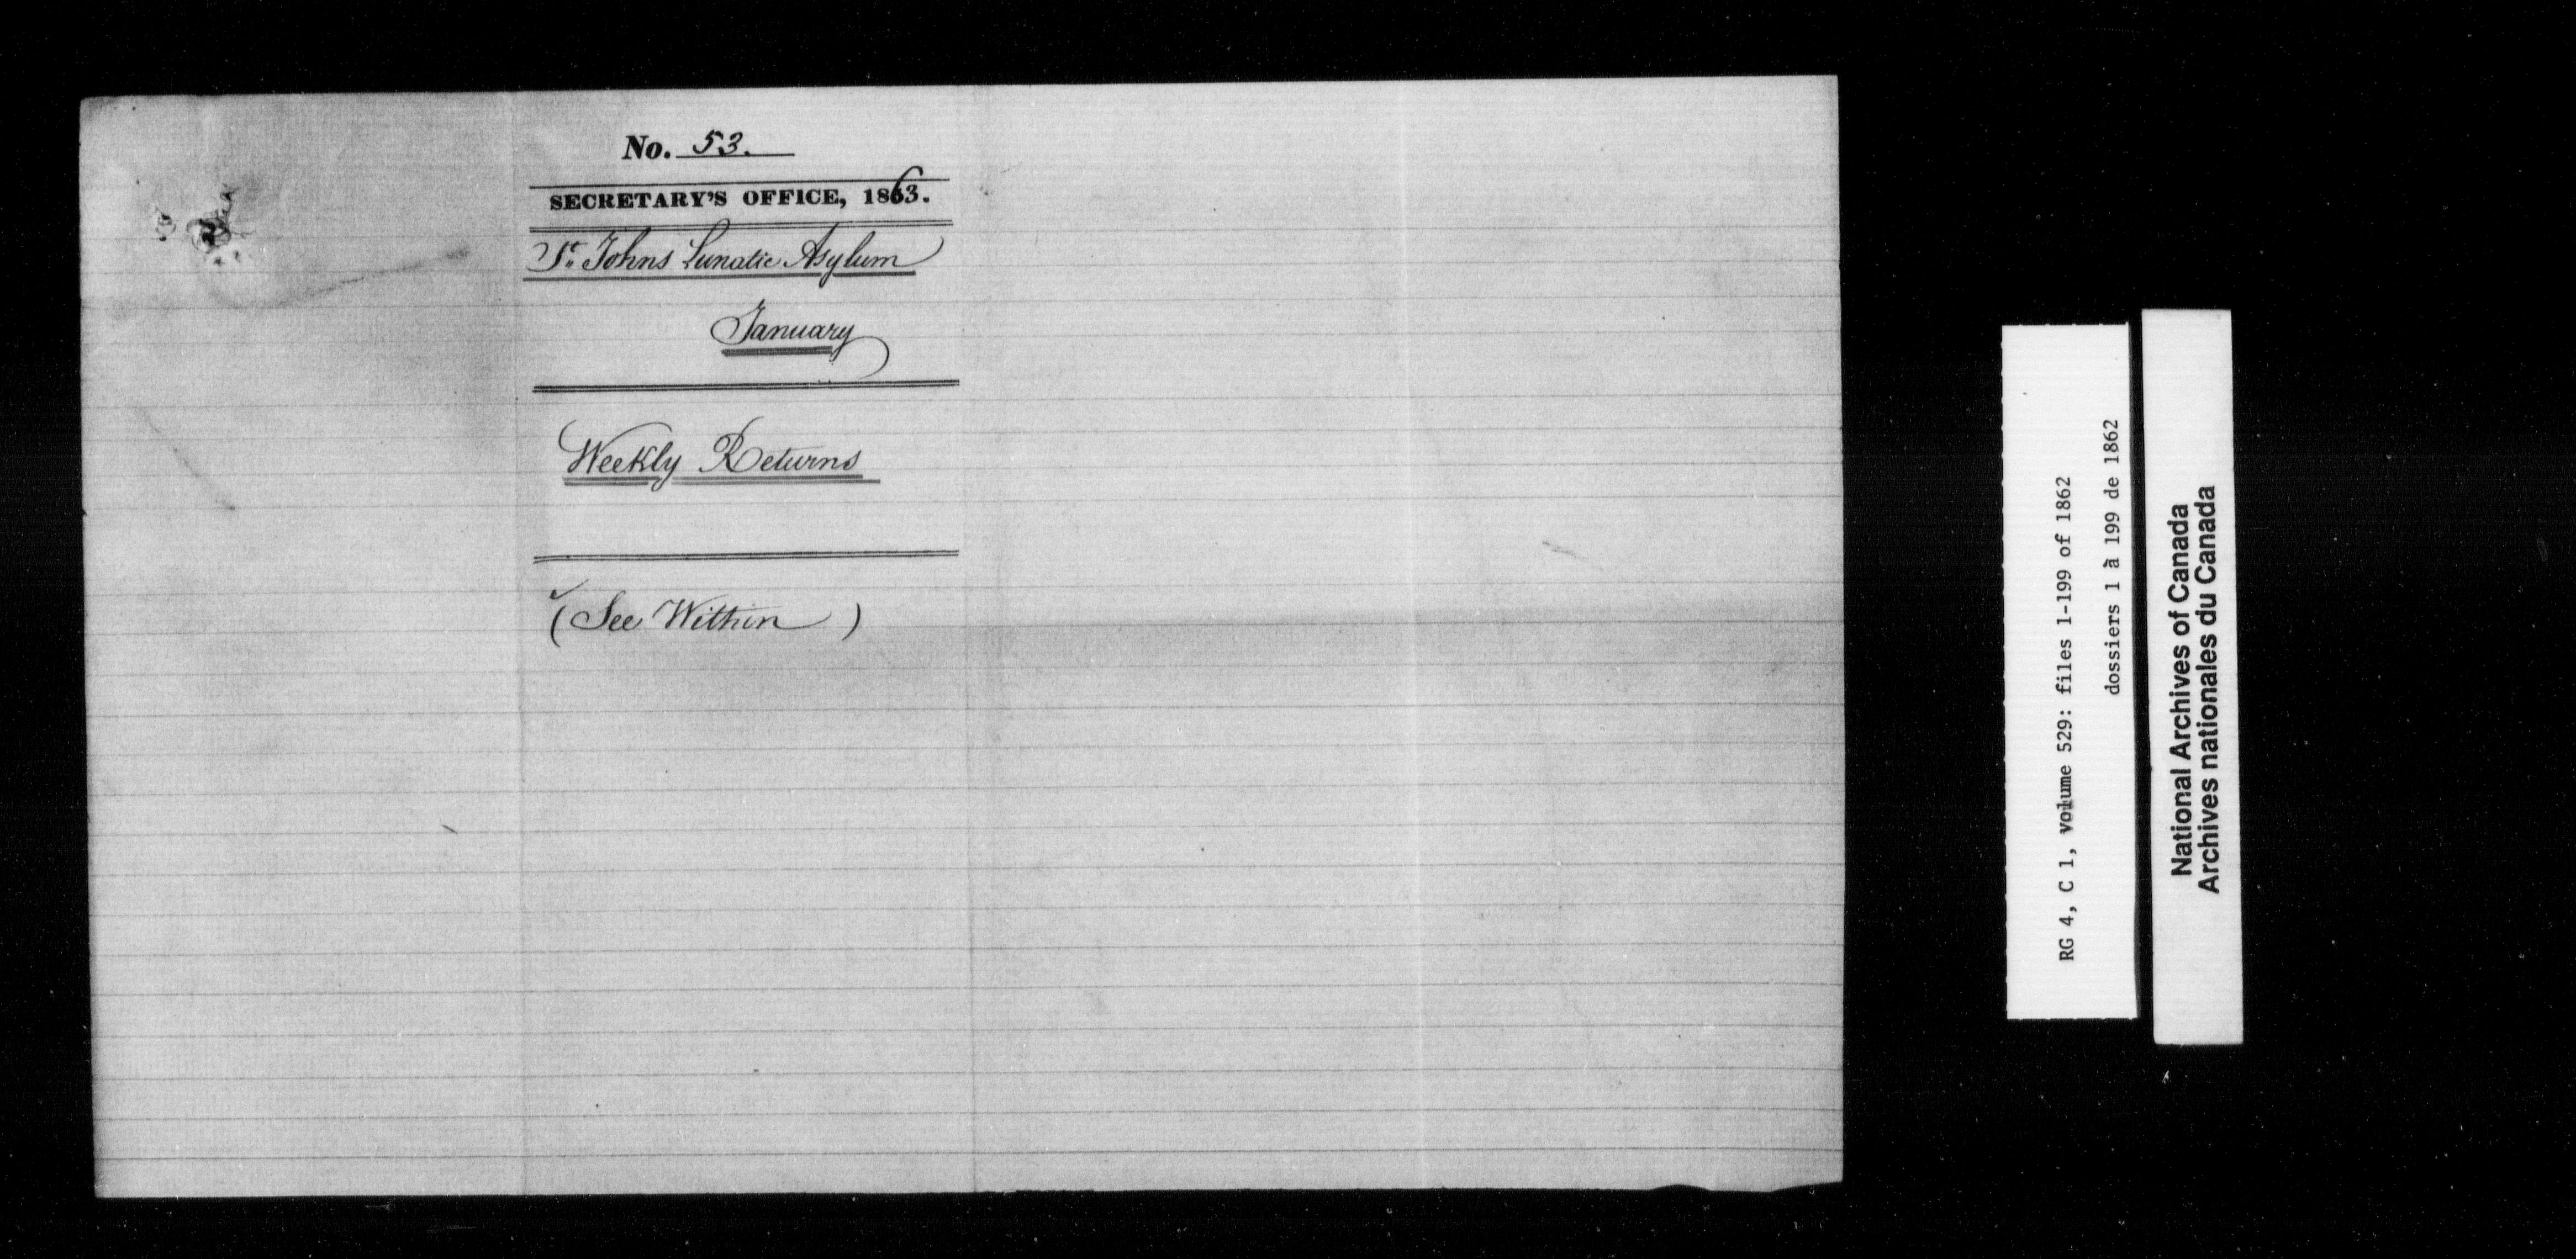 No. 53.
SECRETARY'S OFFICE, 1863.
St. Johns Lunatic Asylum
January
Weekly Returns
(See Within)
RG 4, C 1, volume 529: files 1-199 of 1862
dossiers 1 à 199 de 1862
National Archives of Canada
Archives nationales du Canada